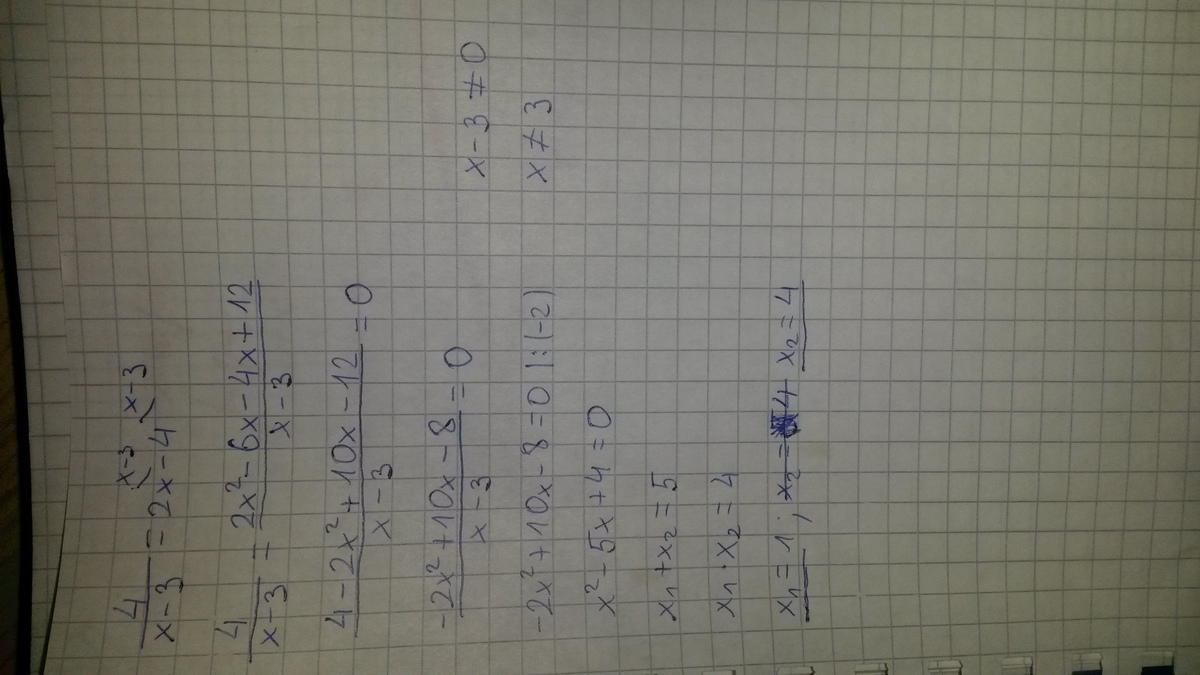 4/(x-3) = 2x - 4
x-3 x-3
4/(x-3) = (2x² - 6x - 4x + 12)/(x-3)
(4 - 2x² + 10x - 12)/(x-3) = 0
(-2x² + 10x - 8)/(x-3) = 0
x - 3 ≠ 0
-2x² + 10x - 8 = 0 |:(-2)
x ≠ 3
x² - 5x + 4 = 0
x₁ + x₂ = 5
x₁ · x₂ = 4
x₁ = 1; x₂ = 4 x₂ = 4